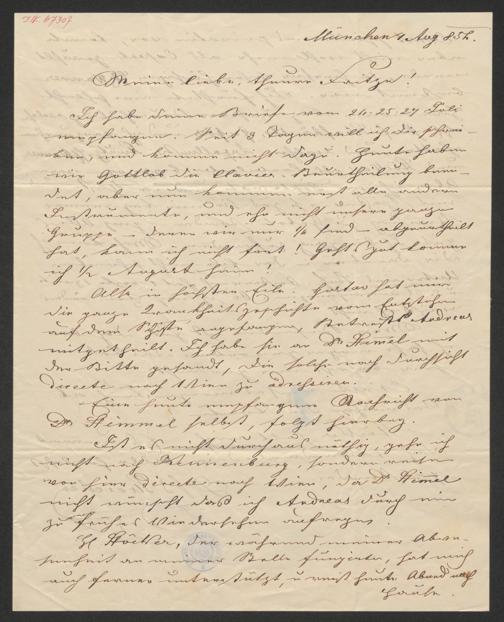 München 4 Aug 854.
Meine liebe, theure Fritze!
Ich habe deine Briefe vom 24. 25. 27 Juli
empfangen. Seit 3 Tagen will ich dir schrei-
ben, und komme nicht dazu! Heute haben
wir Gottlob die Clavier Beurtheilung been-
det, aber nun kommen erst alle andern
Instrumente, und ehe nicht unsere ganze
Gruppe – deren wir nur sind – abgeurtheilt
hat, kann ich nicht fort! Gehts gut komme
ich 1/2 August heim!
Also in höchster Eile. hat mir
die ganze Krankheitsgeschichte vom Entstehen
auf dem angefangen, Andreas
mitgetheilt. Ich habe sie an Dr. Himel mit
der Bitte gesandt, die solche nach Durchsicht
directe nach Wien zu adressiren.
Eine heute empfangene Nachricht von
Dr. Himmel selbst, folgt hierbey.
Ist es nicht durchaus nöthig, gehe ich
nicht nach sondern reise
von hier directe nach Wien, da Dr Himel
nicht wünscht daß ich Andreas durch ein
zu frühes Wiedersehen aufrege.
H. der während meiner Abwe-
senheit an meiner Stelle fungirte, hat mich
auch ferner unterstützt, u reist heute Abend nach
Hause.